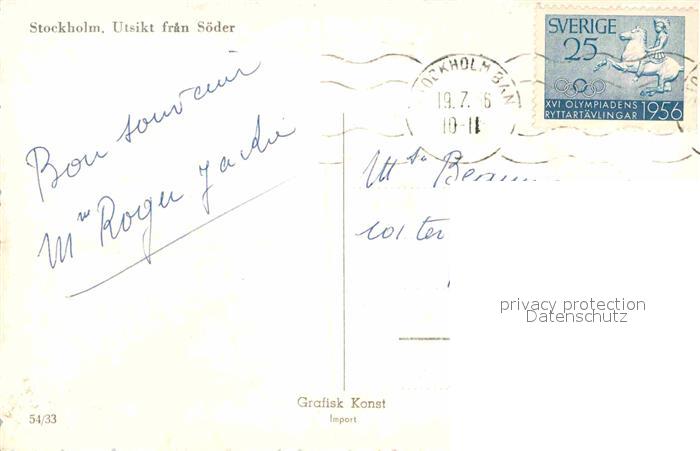 Stockholm, Utsikt från Söder
SVERIGE
25
XVI OLYMPIADENS
RYTTARTÄVLINGAR 1956
STOCKHOLM BAN
19.7.56
10-11
Bon souvenir
Mme Roger
101 ter
privacy protection
Datenschutz
Grafisk Konst
Import
54/33